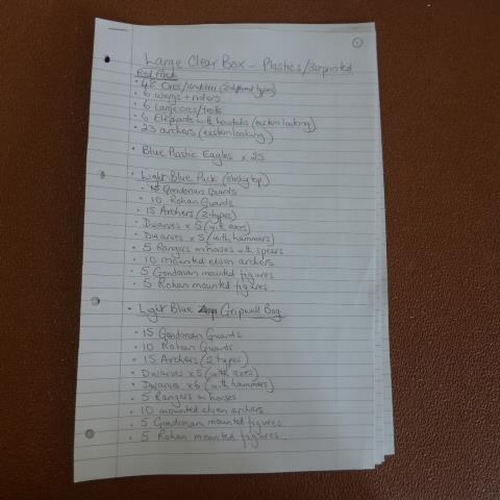 1
Large Clear Box - Plastics/3D printed
Red Pack
• 48 Orcs/Undead (2 different types)
• 6 wargs + riders
• 6 large orcs/trolls
• 6 Elephants with howdahs (eastern looking)
• 23 archers (eastern looking)
• Blue Plastic Eagles x 25
• Light Blue Pack (sticky top)
• 15 Gondorian Guards
• 10 Rohan Guards
• 15 Archers (2 types)
• Dwarves x 5 (with axes)
• Dwarves x 5 (with hammers)
• 5 Rangers on horses with spears
• 10 mounted elven archers
• 5 Gondorian mounted figures
• 5 Rohan mounted figures
• Light Blue Gripwell Bag
• 15 Gondorian Guards
• 10 Rohan Guards
• 15 Archers (2 types)
• Dwarves x5 (with axes)
• Dwarves x 6 (with hammers)
• 5 Rangers on horses
• 10 mounted elven archers
• 5 Gondorian mounted figures
• 5 Rohan mounted figures